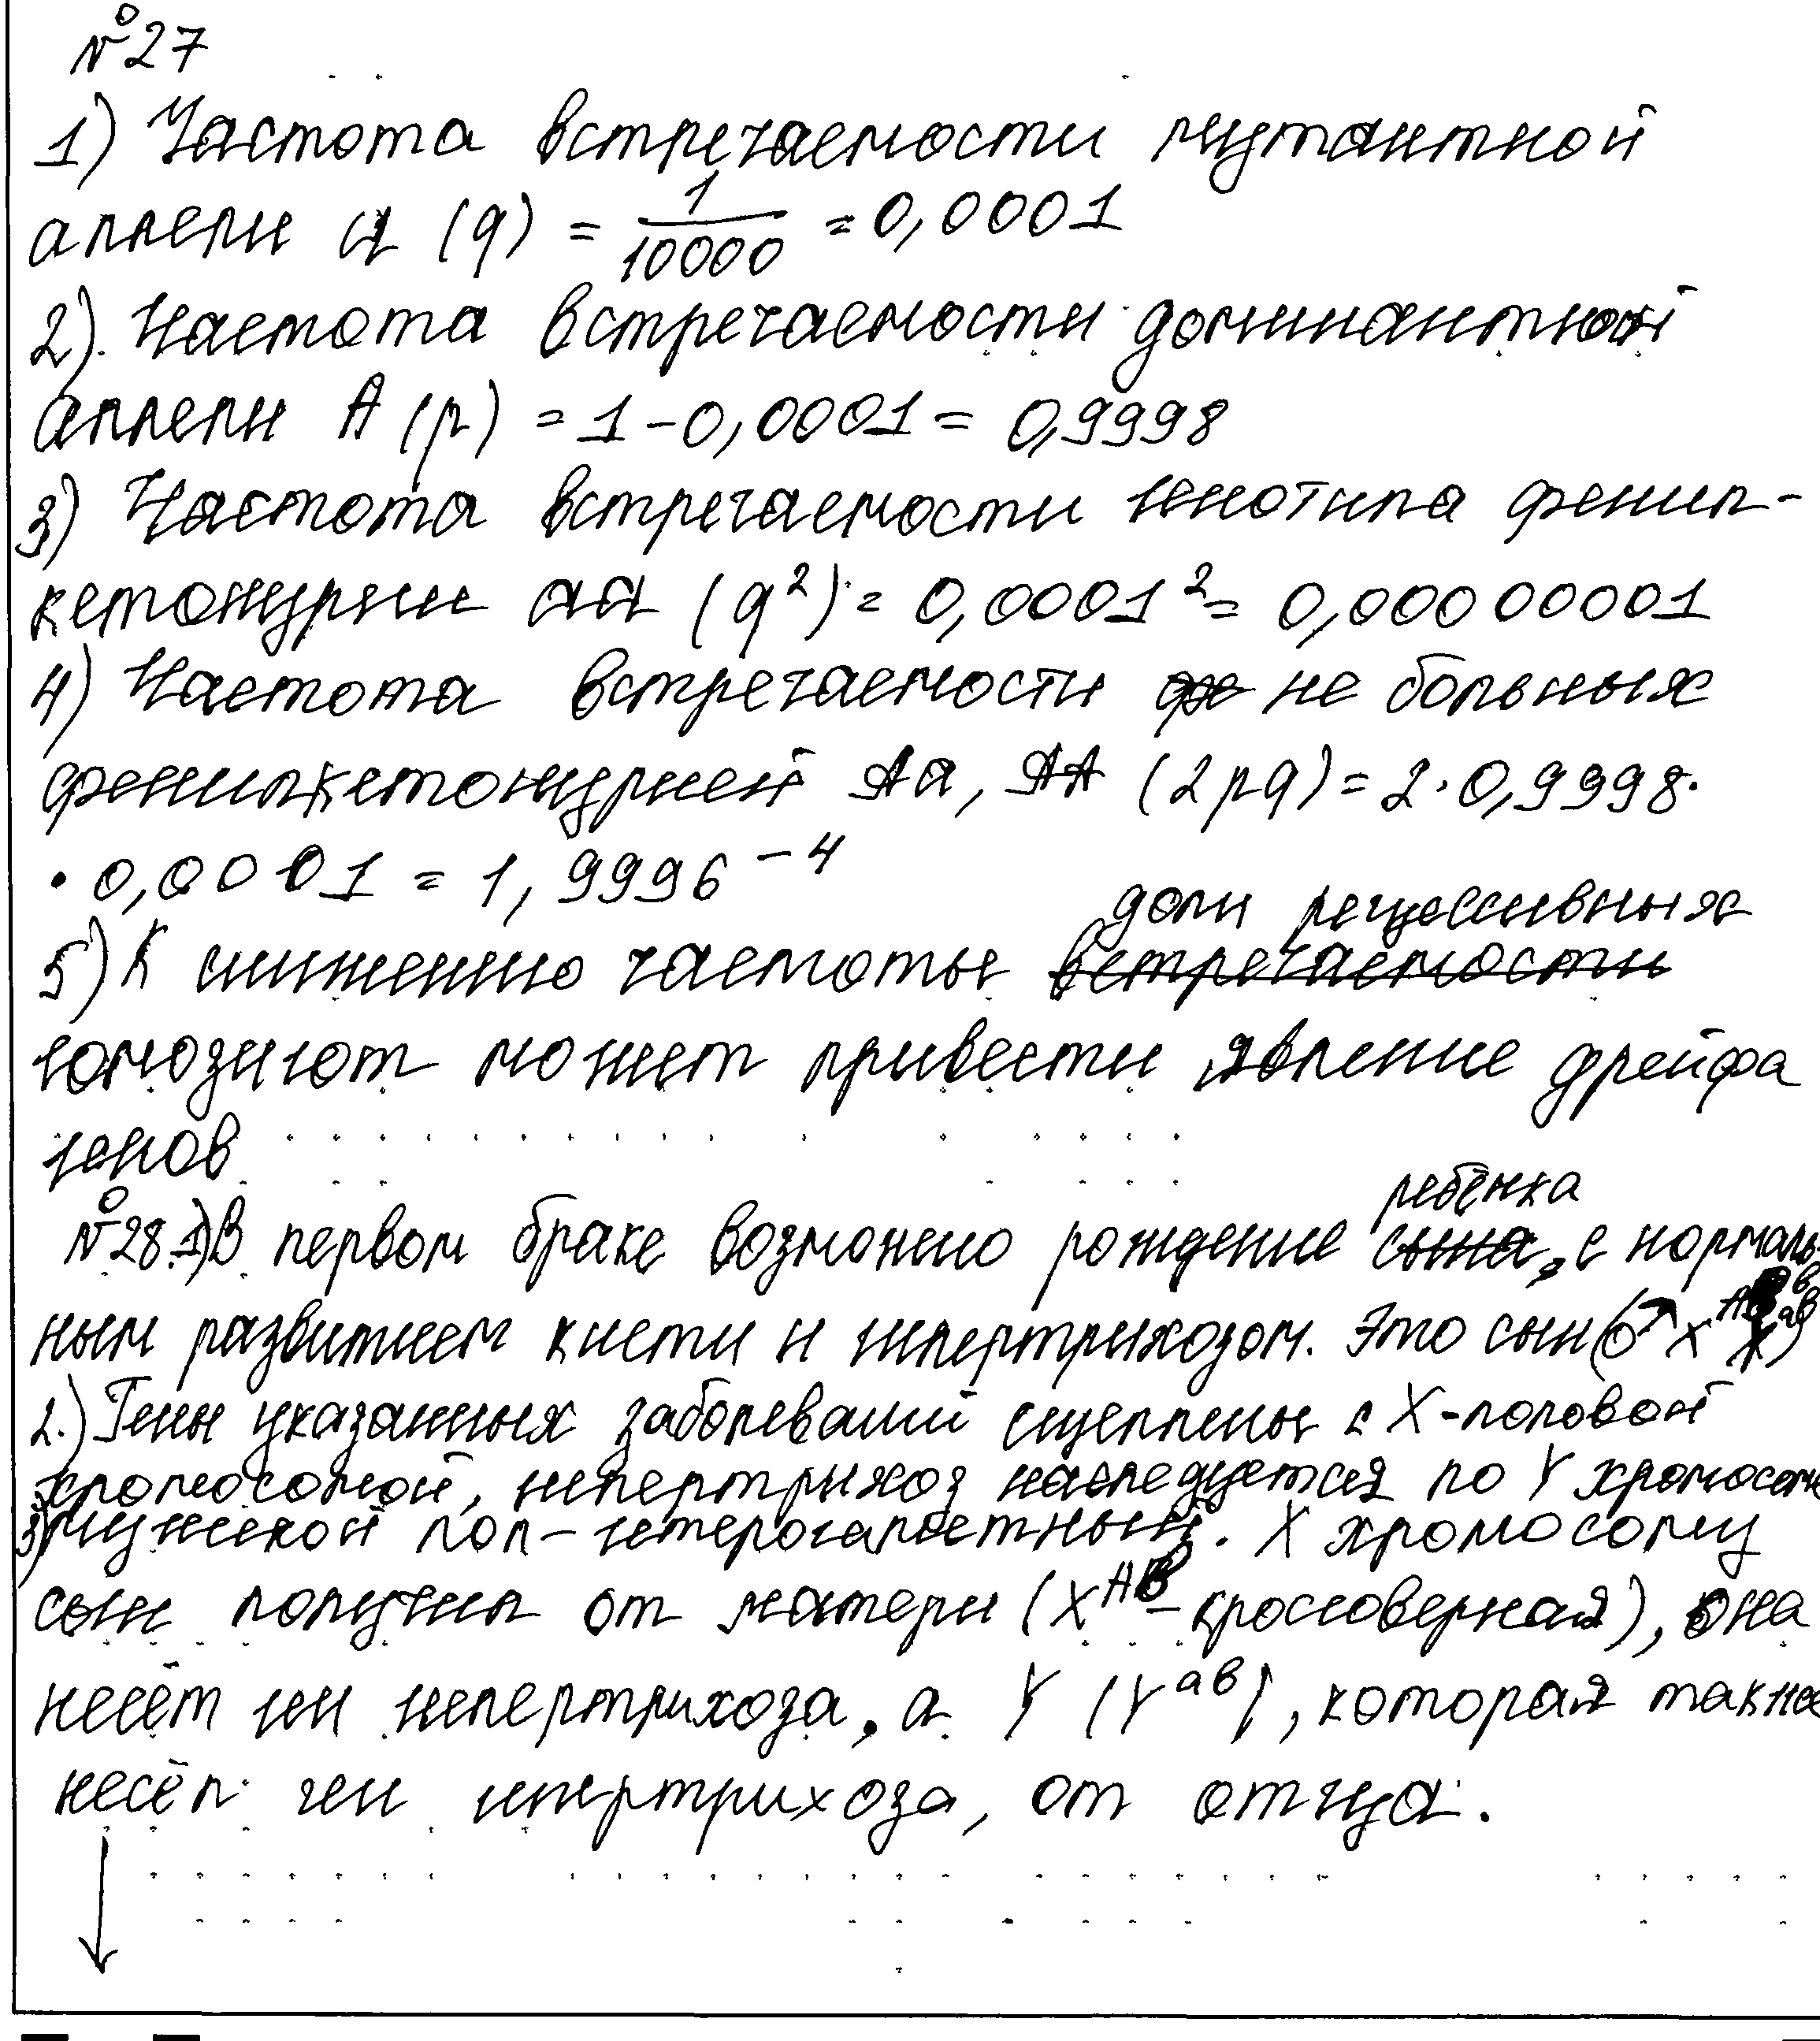 №27
1) Частота встречаемости мутантной
аллели a (q) = 1/10000 = 0,0001
2). Частота встречаемости доминантной
аллели A (p) = 1 - 0,0001 = 0,9998
3) Частота встречаемости генотипа фенил-
кетонурии aa (q²) = 0,0001² = 0,00000001
4) Частота встречаемости не больных
фенилкетонурией Aa, AA (2pq) = 2·0,9998·
· 0,0001 = 1,9996⁻⁴
доли рецессивных
5) К снижению частоты встречаемости
гомозигот может привести явление дрейфа
генов
ребёнка
№28. 1) В первом браке возможено рождение сына, с нормаль-
ным развитием кисти и гипертрихозом. Это сын (♂ X
2.) Гены указанных заболеваний сцеплены с X-половой
хромосомой, гипертрихоз наследуется по Y хромосоме
3) мужской пол - гетерогаметный. X хромосому
сын получил от матери (Xᴬᴮ - кроссоверная), она
несёт ген гипертрихоза, а Y (Yᵃᵇ), которая также
несёт ген гипертрихоза, от отца.